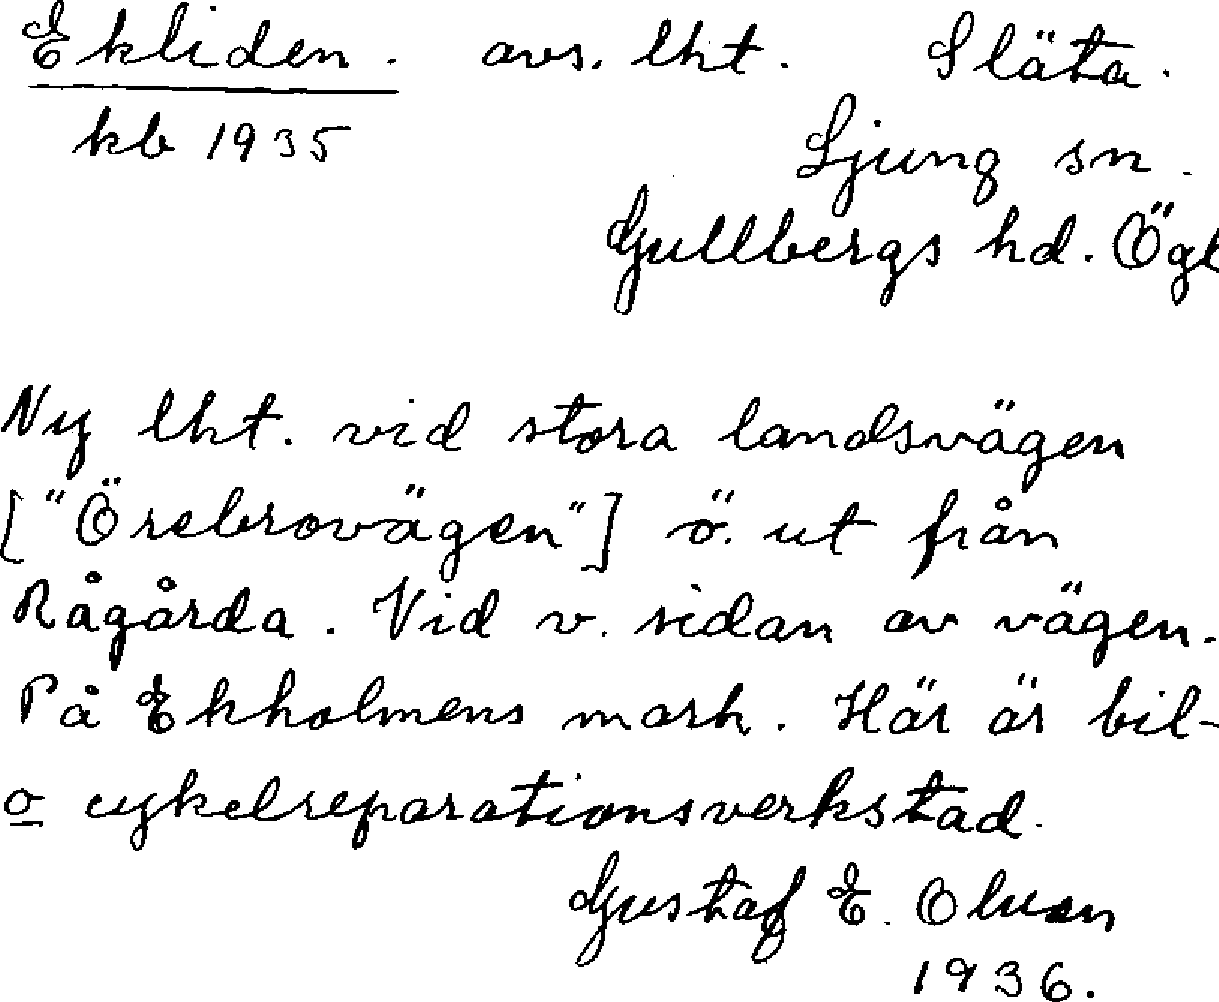 Ekliden. avs. lht. Släta.
kb 1935
Ljung sn.
Gullbergs hd. Ögl
Ny lht. vid stora landsvägen
["Örebrovägen"] ö. ut från
Rågårda. Vid v. sidan av vägen.
På Ekholmens mark. Här är bil-
o cykelreparationsverkstad.
Gustaf E.
1936.